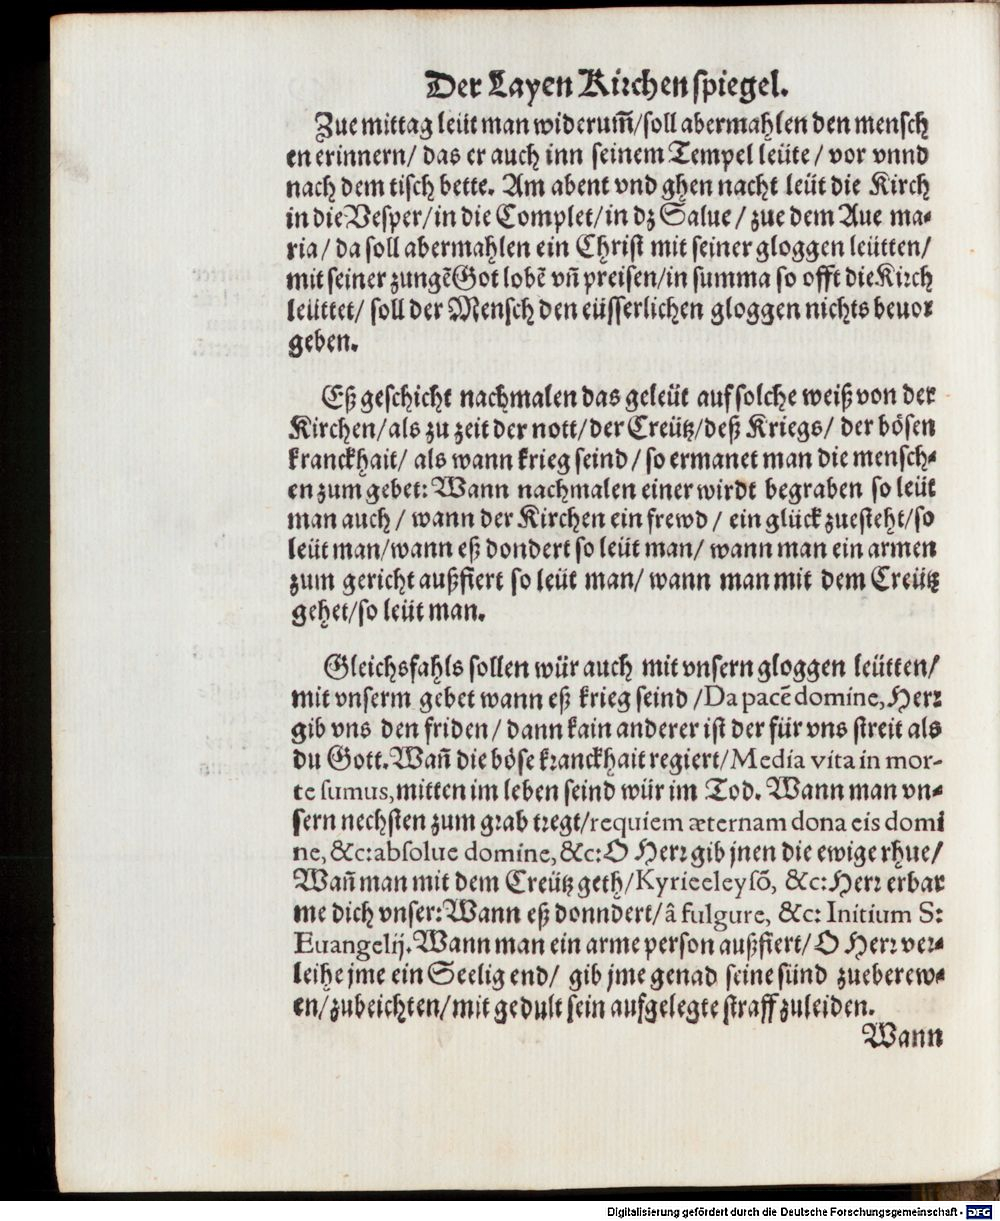 Der Layen Kirchenspiegel.
Zue mittag leüt man widerum̃/soll abermahlen den mensch
en erinnern/ das er auch inn seinem Tempel leüte/ vor vnnd
nach dem tisch bette. Am abent vnd ghen nacht leüt die Kirch
in die Vesper/in die Complet/in dz Salue/ zue dem Aue ma-
ria/ da soll abermahlen ein Christ mit seiner gloggen leütten/
mit seiner zungẽ Got lobẽ vñ preisen/in summa so offt die Kirch
leüttet/ soll der Mensch den eüsserlichen gloggen nichts beuor
geben.
Eß geschicht nachmalen das geleüt auf solche weiß von der
Kirchen/als zu zeit der nott/der Creütz/deß Kriegs/ der bösen
kranckhait/ als wann krieg seind/ so ermanet man die mensch-
en zum gebet: Wann nachmalen einer wirdt begraben so leüt
man auch/ wann der Kirchen ein frewd/ ein glück zuesteht/so
leüt man/wann eß dondert so leüt man/ wann man ein armen
zum gericht außfiert so leüt man/ wann man mit dem Creütz
gehet/so leüt man.
Gleichsfahls sollen wür auch mit vnsern gloggen leütten/
mit vnserm gebet wann eß krieg seind/Da pacẽ domine, Herr
gib vns den friden/ dann kain anderer ist der für vns streit als
du Gott. Wañ die böse kranckhait regiert/Media vita in mor-
te sumus, mitten im leben seind wür im Tod. Wann man vn-
sern nechsten zum grab tregt/requiem æternam dona eis domi
ne, &c: absolue domine, &c: O Herr gib jnen die ewige rhue/
Wañ man mit dem Creütz geth/Kyrieeleysõ, &c: Herr erbar
me dich vnser: Wann eß donndert/â fulgure, &c: Initium S:
Euangelij. Wann man ein arme person außfiert/ O Herr ver-
leihe jme ein Seelig end/ gib jme genad seine sünd zueberew-
en/zubeichten/mit gedult sein aufgelegte straff zuleiden.
Wann
Digitalisierung gefördert durch die Deutsche Forschungsgemeinschaft - DFG